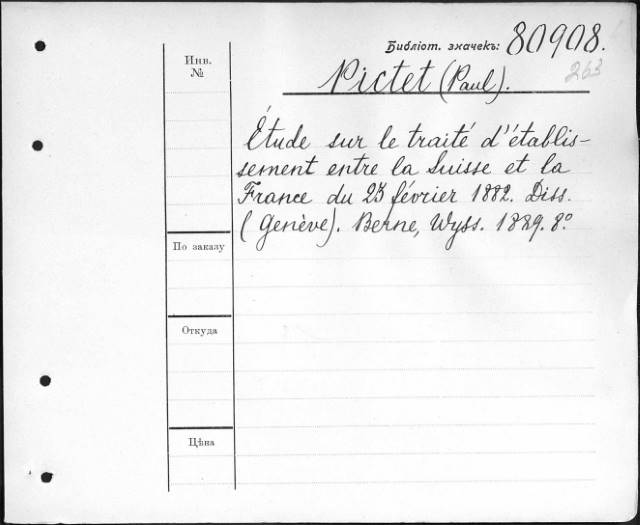 Библіот. значекъ: 80908.
263
Инв.
№
Pictet (Paul).
Étude sur le traité d'établis-
sement entre la Suisse et la
France du 23 février 1882. Diss.
(Genève). Berne, Wyss. 1889. 8°
По заказу
Откуда
Цѣна